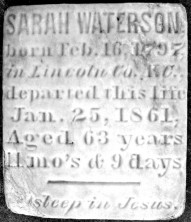 SARAH WATERSON
born Feb. 16, 1797
in Lincoln Co., N.C.,
departed this life
Jan. 25, 1861,
Aged, 63 years
11.mo's & 9 days
Asleep in Jesus.